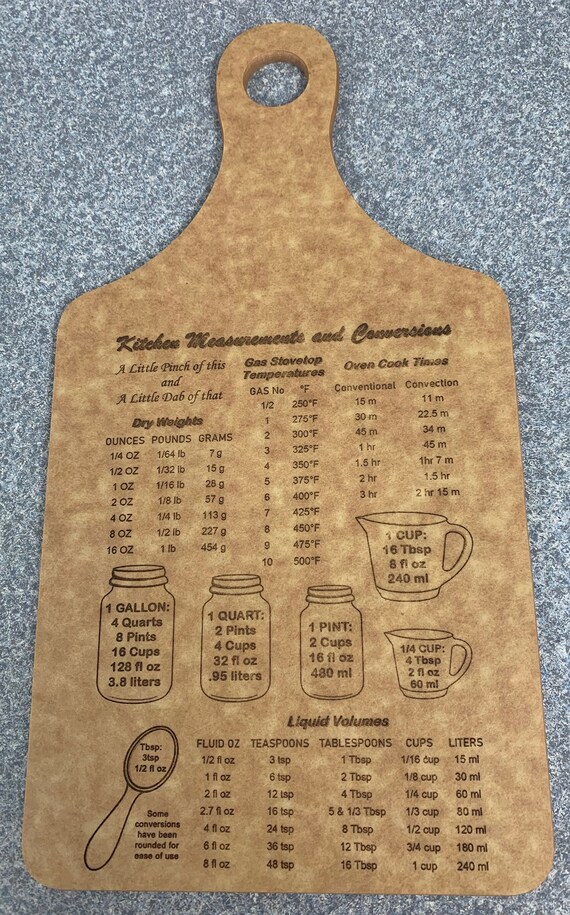 Kitchen Measurements and Conversions
A Little Pinch of this
and
A Little Dab of that
Dry Weights
OUNCES POUNDS GRAMS
1/4 OZ 1/64 lb 7 g
1/2 OZ 1/32 lb 15 g
1 OZ 1/16 lb 28 g
2 OZ 1/8 lb 57 g
4 OZ 1/4 lb 113 g
8 OZ 1/2 lb 227 g
16 OZ 1 lb 454 g
Gas Stovetop
Temperatures
GAS No °F
1/2 250°F
1 275°F
2 300°F
3 325°F
4 350°F
5 375°F
6 400°F
7 425°F
8 450°F
9 475°F
10 500°F
Oven Cook Times
Conventional Convection
15 m 11 m
30 m 22.5 m
45 m 34 m
1 hr 45 m
1.5 hr 1hr 7 m
2 hr 1.5 hr
3 hr 2 hr 15 m
1 CUP:
16 Tbsp
8 fl oz
240 ml
1 GALLON:
4 Quarts
8 Pints
16 Cups
128 fl oz
3.8 liters
1 QUART:
2 Pints
4 Cups
32 fl oz
.95 liters
1 PINT:
2 Cups
16 fl oz
480 ml
1/4 CUP:
4 Tbsp
2 fl oz
60 ml
Tbsp:
3tsp
1/2 fl oz
Some
conversions
have been
rounded for
ease of use
Liquid Volumes
FLUID OZ TEASPOONS TABLESPOONS CUPS LITERS
1/2 fl oz 3 tsp 1 Tbsp 1/16 cup 15 ml
1 fl oz 6 tsp 2 Tbsp 1/8 cup 30 ml
2 fl oz 12 tsp 4 Tbsp 1/4 cup 60 ml
2.7 fl oz 16 tsp 5 & 1/3 Tbsp 1/3 cup 80 ml
4 fl oz 24 tsp 8 Tbsp 1/2 cup 120 ml
6 fl oz 36 tsp 12 Tbsp 3/4 cup 180 ml
8 fl oz 48 tsp 16 Tbsp 1 cup 240 ml